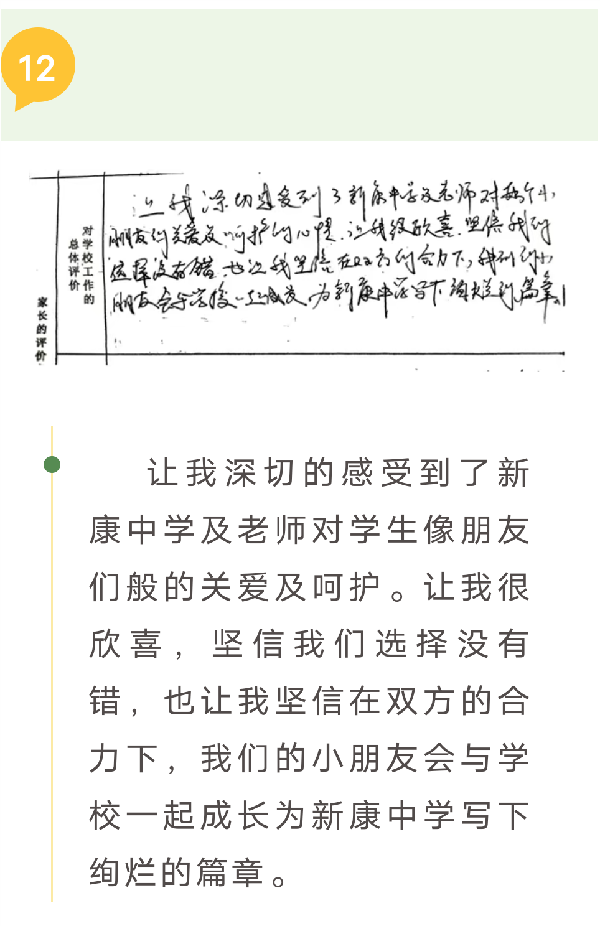 12
对学校工作的
总体评价
家长的评价
让我深切感受到了新康中学及老师对热个小
朋友们关爱及呵护的心情.让我很欣喜.坚信我们
选择没有错.也让我坚信在双方的合力下,我们的小
朋友会与学校一起成长.为新康中学写下绚烂的篇章。
让我深切的感受到了新
康中学及老师对学生像朋友
们般的关爱及呵护。让我很
欣喜，坚信我们选择没有
错，也让我坚信在双方的合
力下，我们的小朋友会与学
校一起成长为新康中学写下
绚烂的篇章。